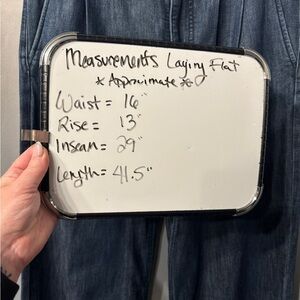 Measurements Laying Flat
* Approximate *
Waist = 16"
Rise = 13"
Inseam = 29"
Length = 41.5"